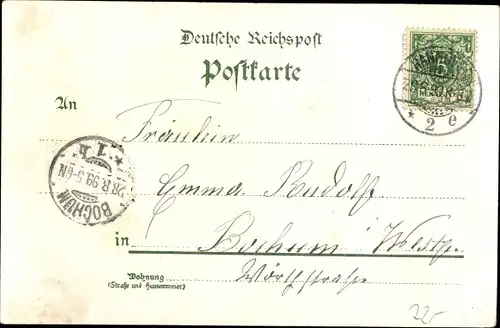 Deutsche Reichspost
Postkarte
An
Fräulein
Emma Rudolf
in Bochum i/Westf.
Wörthstraße
Wohnung
(Straße und Hausnummer)
BOCHUM
28.8.99.5-6N
* 1.b.
* 2 e
22-